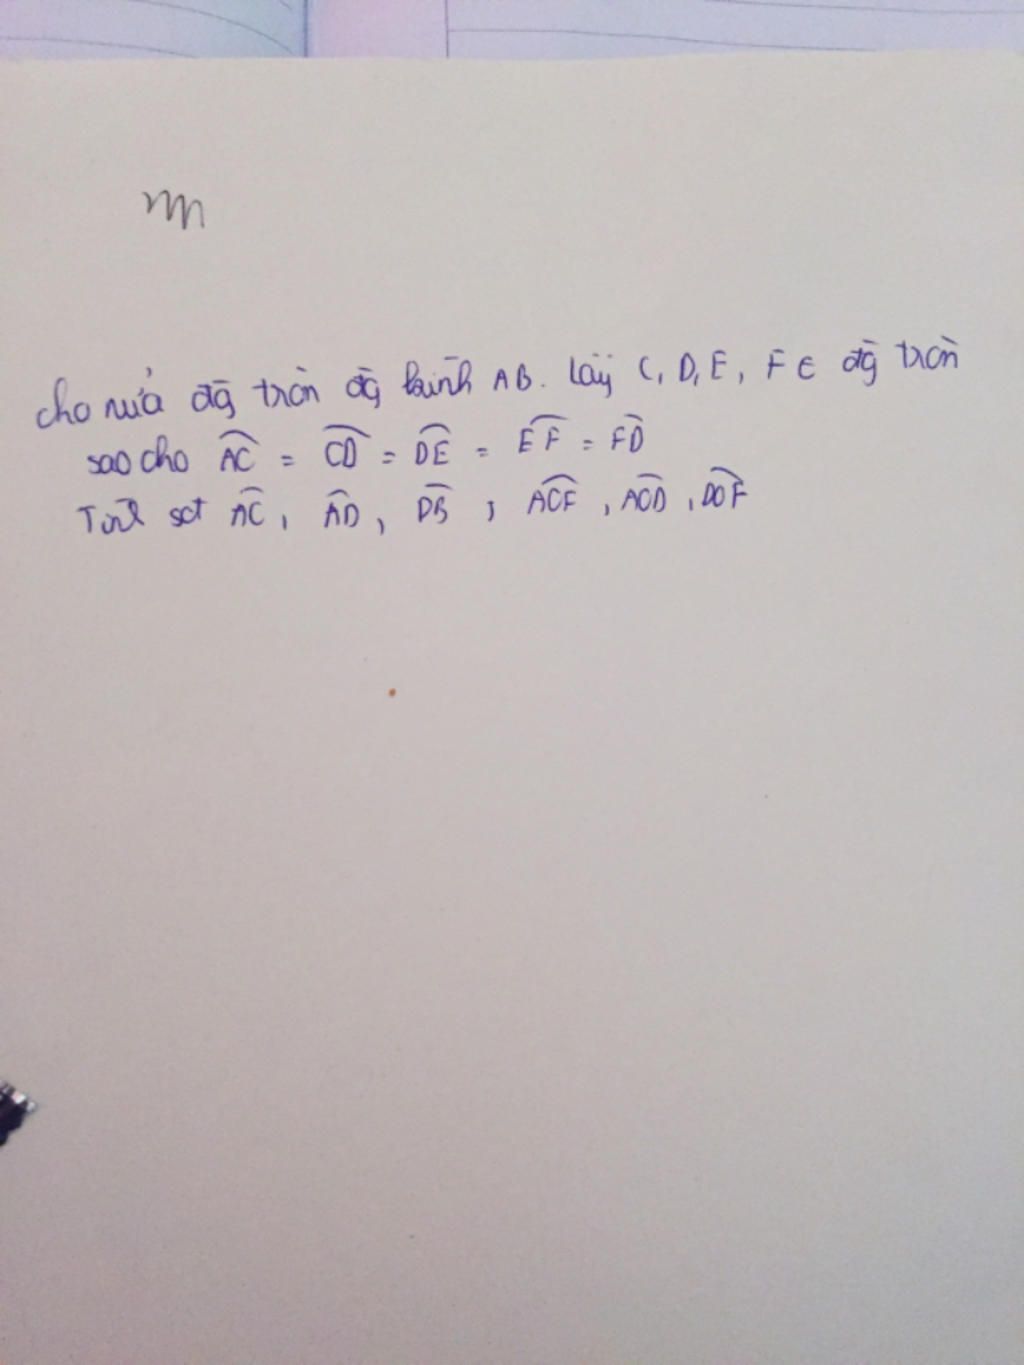 cho nửa đg tròn đg kính AB. Lấy C, D, E, F ∈ đg tròn
sao cho AC = CD = DE = EF = FD
Tính sđ AC, AD, DB ; ACF, ACD, DOF